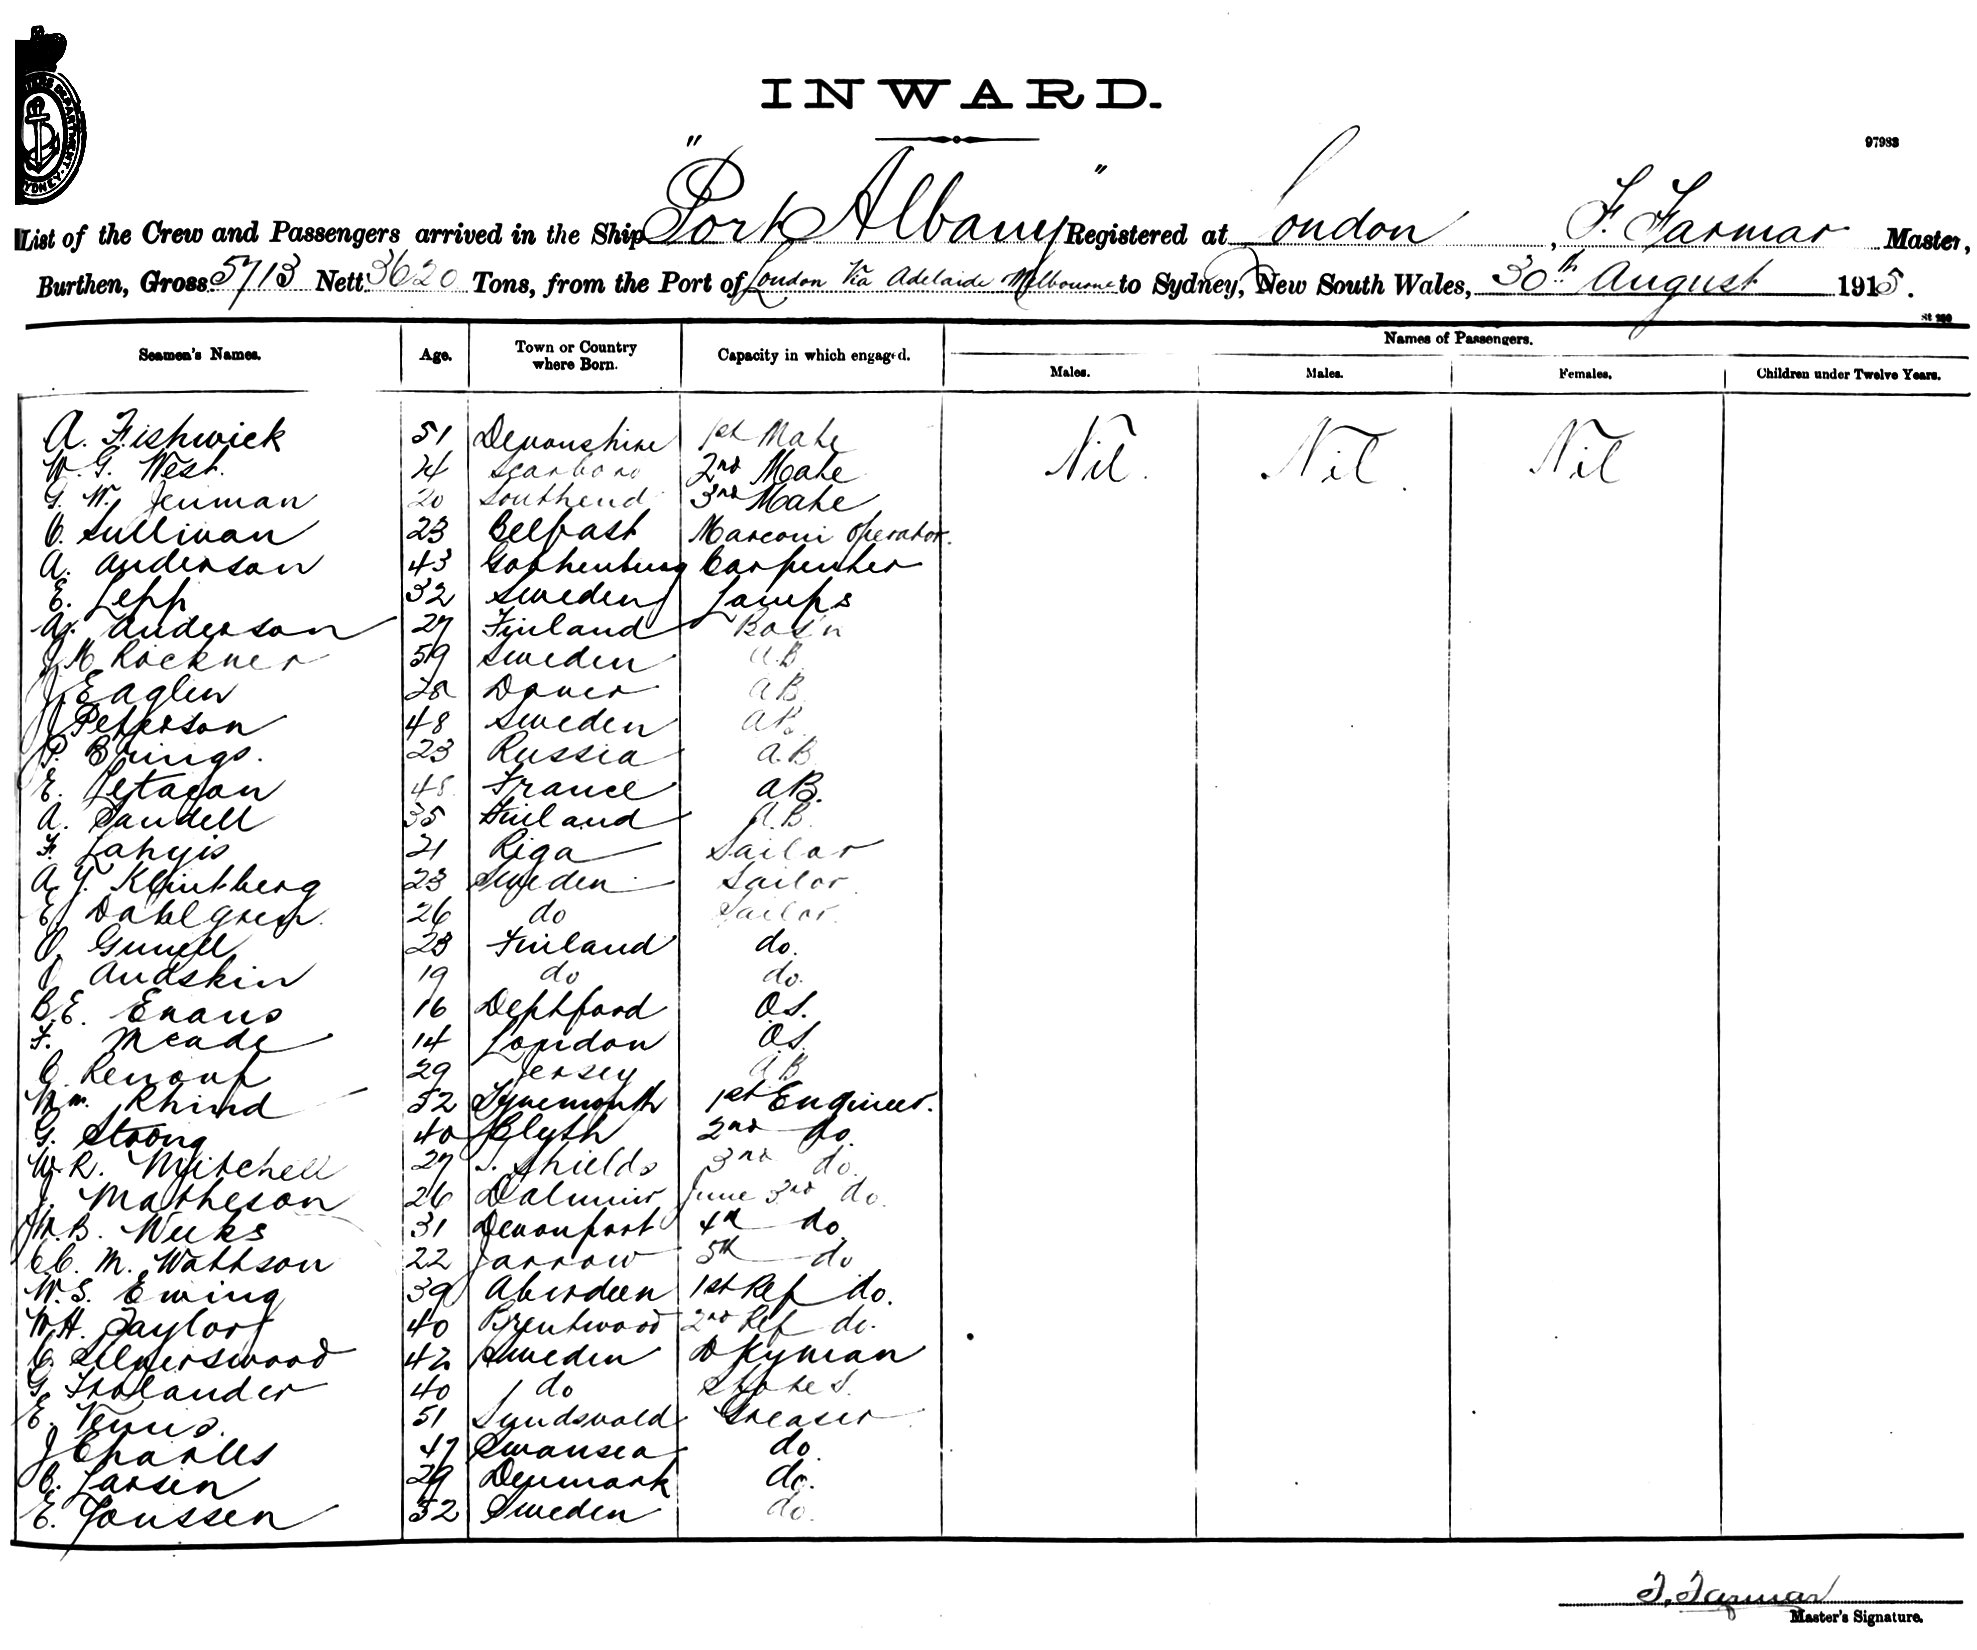 INWARD.
97983
List of the Crew and Passengers arrived in the Ship "Port Albany" Registered at London, F. Farmar Master,
Burthen, Gross 5713 Nett 3620 Tons, from the Port of London Via Adelaide Melbourne to Sydney, New South Wales, 30th August 1915.
Seamen's Names. Age. Town or Country where Born. Capacity in which engaged. Names of Passengers.
Males. Males. Females. Children under Twelve Years.
A. Fishwick 51 Devonshire 1st Mate Nil. Nil. Nil
W. G. West. 24 Scarboro 2nd Mate
G. W. Jenman 20 Southend 3rd Mate
C. Sullivan 23 Belfast Marconi Operator.
A. Anderson 43 Gothenburg Carpenter
E. Lepp 32 Sweden Lamps
A. Anderson 27 Finland Bos'n
J. M Rockner 59 Sweden A.B.
J Eaglen 28 Dover AB.
J Peterson 48 Sweden AB.
P. Brings. 23 Russia A.B
E. Letacon 48 France AB.
A. Sandell 35 Finland A.B.
F. 21 Riga Sailor
A. Y. Klintberg 23 Sweden Sailor.
E. Dahlgren. 26 do Sailor.
O. Gunell 23 Finland do.
O Andskin 19 do do.
B.E. Evans 16 Deptford O.S.
F. Meade 14 London O.S.
C. Renouf 29 Jersey A.B
Wm. Rhind 52 Tynemouth 1st Engineer.
G. Strong 40 Blyth 2nd do.
W. R. Mitchell 27 S. Shields 3rd do.
J. Matheson 26 Dalmuir June 3rd do.
W. B. Weeks 31 Devonport 4th do
C. M. Wattson 22 Jarrow 5th do
W. S. Ewing 39 Aberdeen 1st Ref do.
W H. Taylor 40 Brentwood 2nd Ref do.
C. Silverswood 42 Sweden Dkyman
G. Frolander 40 do
E. Venus. 51 Sundsvald Greaser
J Charles 47 Swansea do.
C. Larsen 29 Denmark do.
E. Jonssen 52 Sweden do.
F. Farmar
Master's Signature.